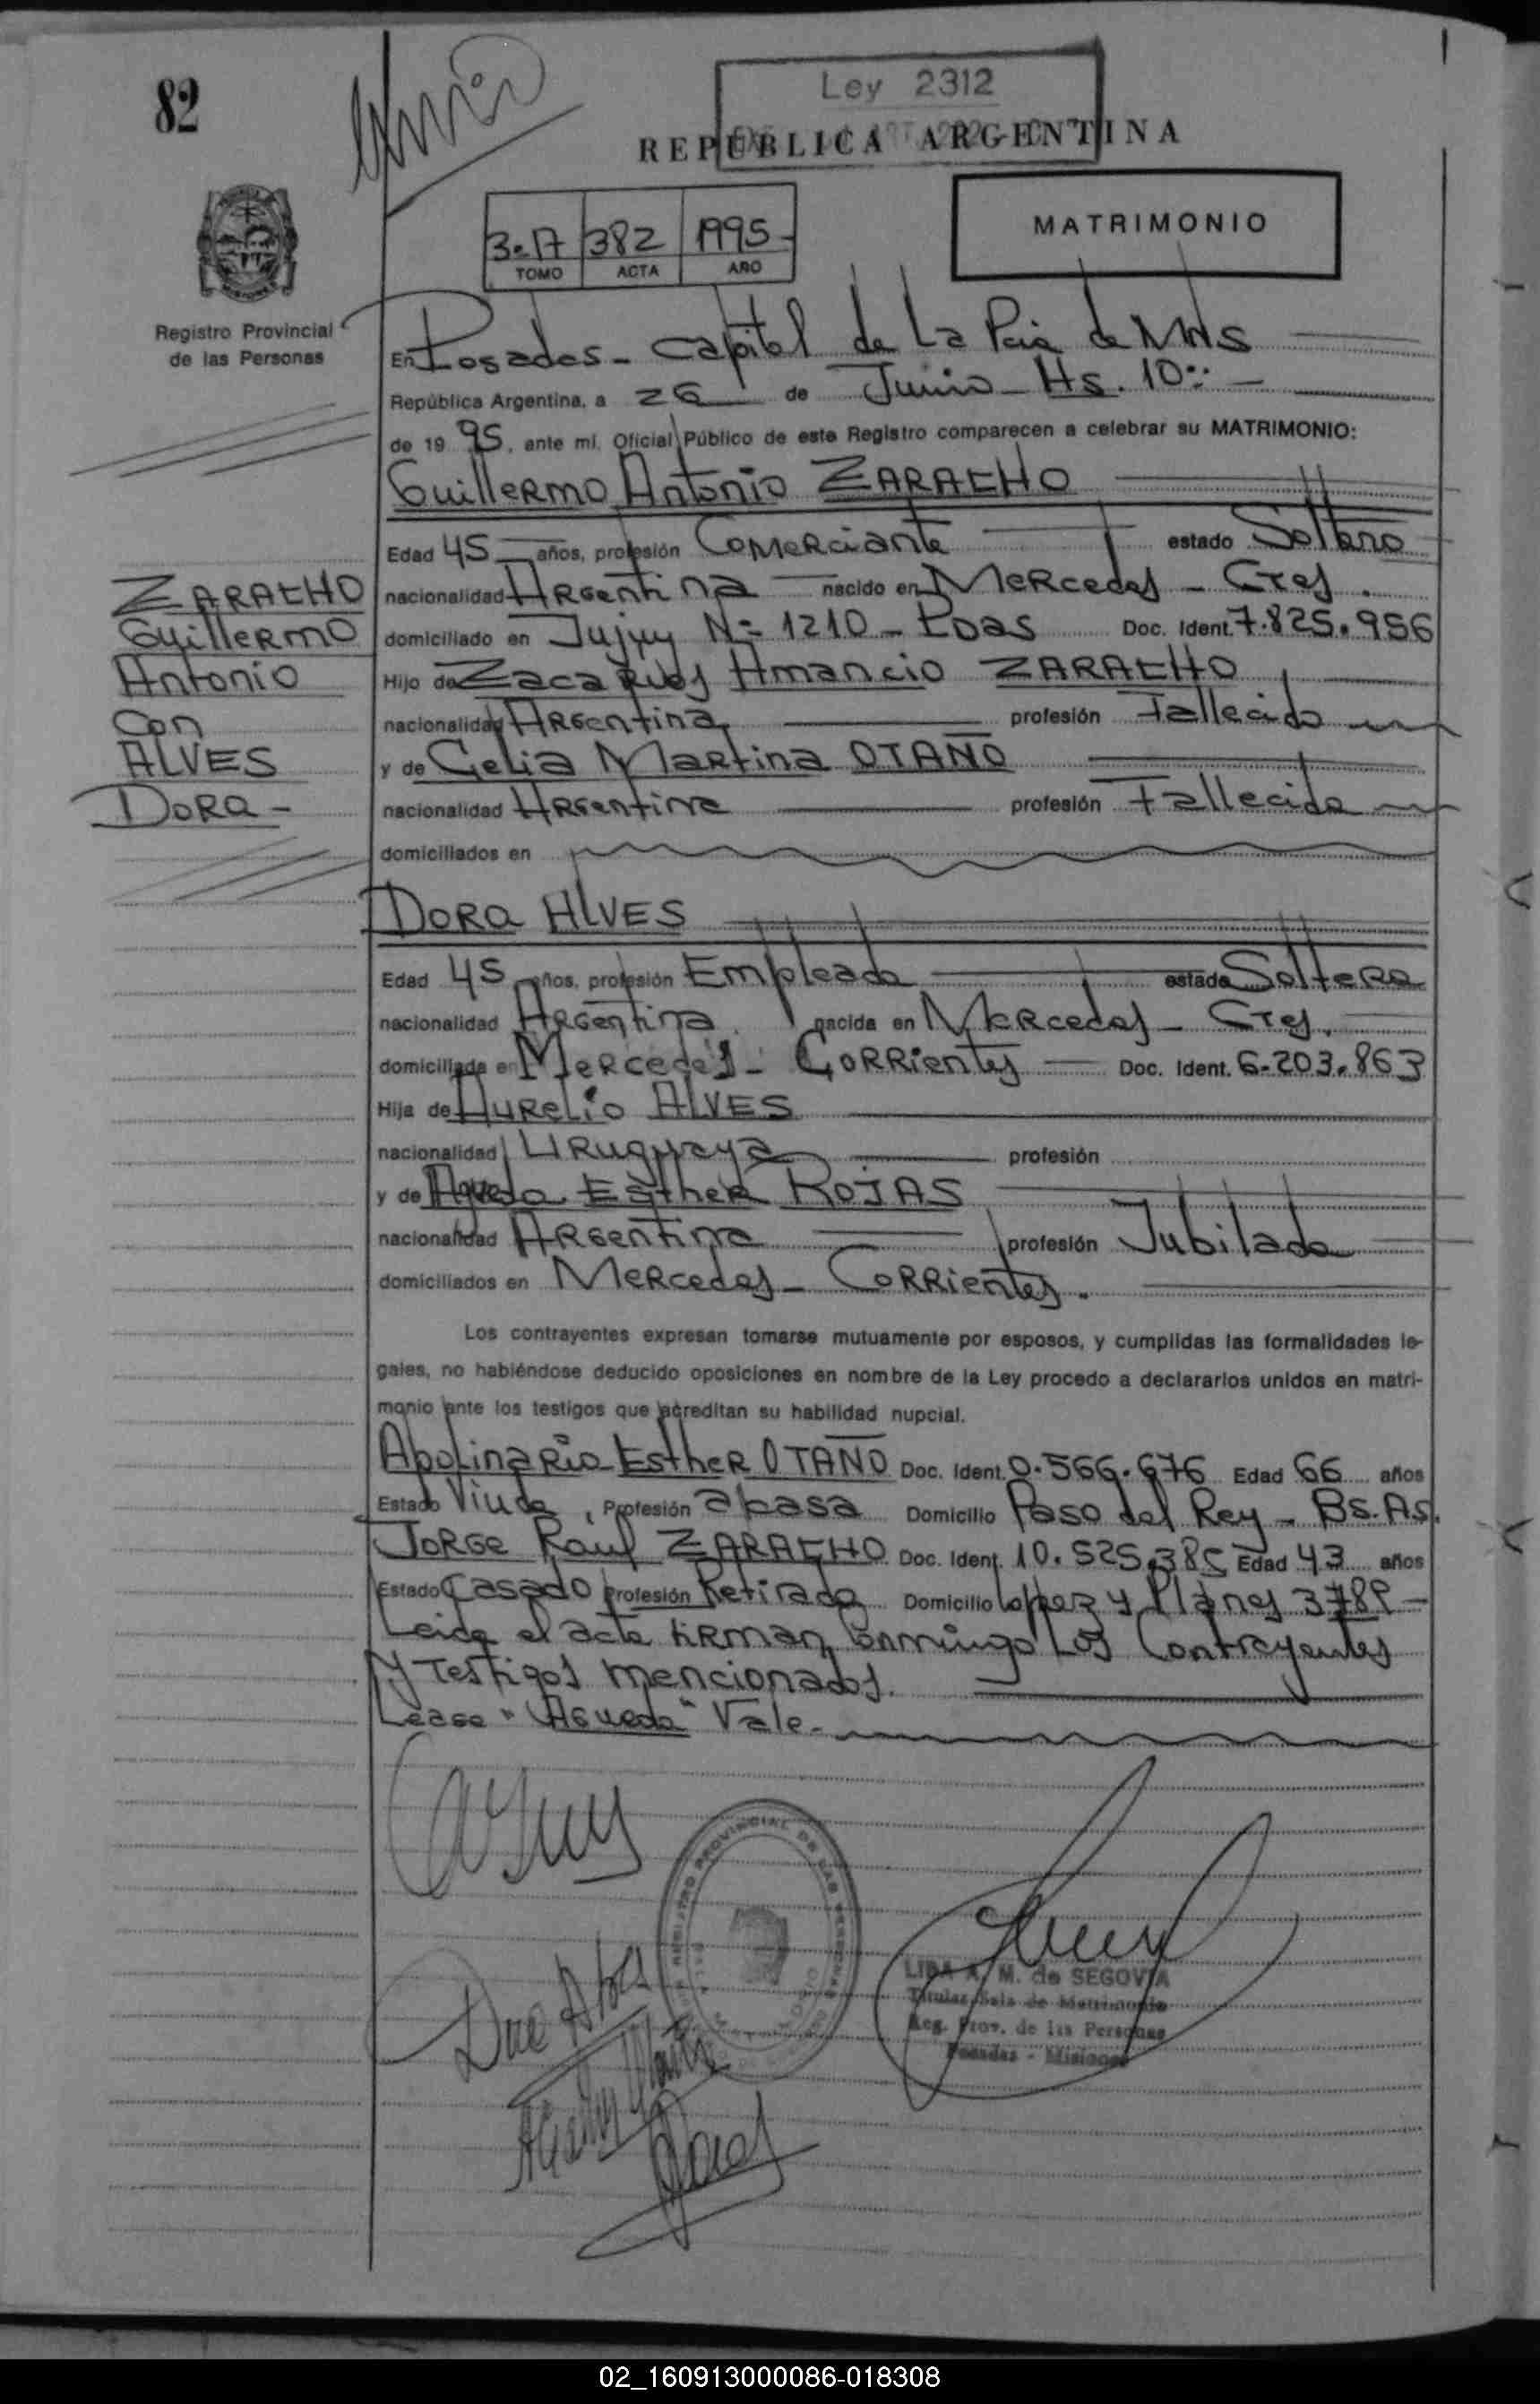 82
Ley 2312
REPUBLICA ARGENTINA
MATRIMONIO
3-17 382 1995-
TOMO ACTA AÑO
Registro Provincial
de las Personas
En Posadas - Capital de La Pcia de MNS
República Argentina, a 26 de Junio - Hs. 10:: -
de 19 95, ante mí, Oficial Público de este Registro comparecen a celebrar su MATRIMONIO:
Guillermo Antonio ZARACHO
Edad 45 años, profesión Comerciante estado Soltero
nacionalidad Argentina nacido en Mercedes - Ctes.
domiciliado en Jujuy Nº 1210 - Pdas Doc. Ident. 7.825.956
Hijo de Zacarias Amancio ZARACHO
nacionalidad Argentina profesión Fallecido
y de Celia Martina OTAÑO
nacionalidad Argentina profesión Fallecida
domiciliados en
ZARACHO
Guillermo
Antonio
Con
ALVES
Dora -
DORA ALVES
Edad 45 años, profesión Empleada estado Soltera
nacionalidad Argentina nacida en Mercedes - Ctes.
domiciliada en Mercedes - Corrientes Doc. Ident. 6.203.863
Hija de Aurelio ALVES
nacionalidad Uruguaya profesión
y de Agueda Esther ROJAS
nacionalidad Argentina profesión Jubilada
domiciliados en Mercedes - Corrientes.
Los contrayentes expresan tomarse mutuamente por esposos, y cumplidas las formalidades le-
gales, no habiéndose deducido oposiciones en nombre de la Ley procedo a declararlos unidos en matri-
monio ante los testigos que acreditan su habilidad nupcial.
Apolinaria Esther OTAÑO Doc. Ident. 0.566.676 Edad 66 años
Estado Viuda, Profesión acasa Domicilio Paso del Rey - Bs.As.
Jorge Raul ZARACHO Doc. Ident. 10.525.385 Edad 43 años
Estado Casado Profesión Retirado Domicilio Lopez y Planes 3789 -
Leida el acta firman conmigo Los Contrayentes
y Testigos mencionados.
Lease "Agueda" Vale.
REGISTRO PROVINCIAL DE LAS PERSONAS
LIDA A. M. de SEGOVIA
Titular Sala de Matrimonio
Reg. Prov. de las Personas
Posadas - Misiones
02_160913000086-018308